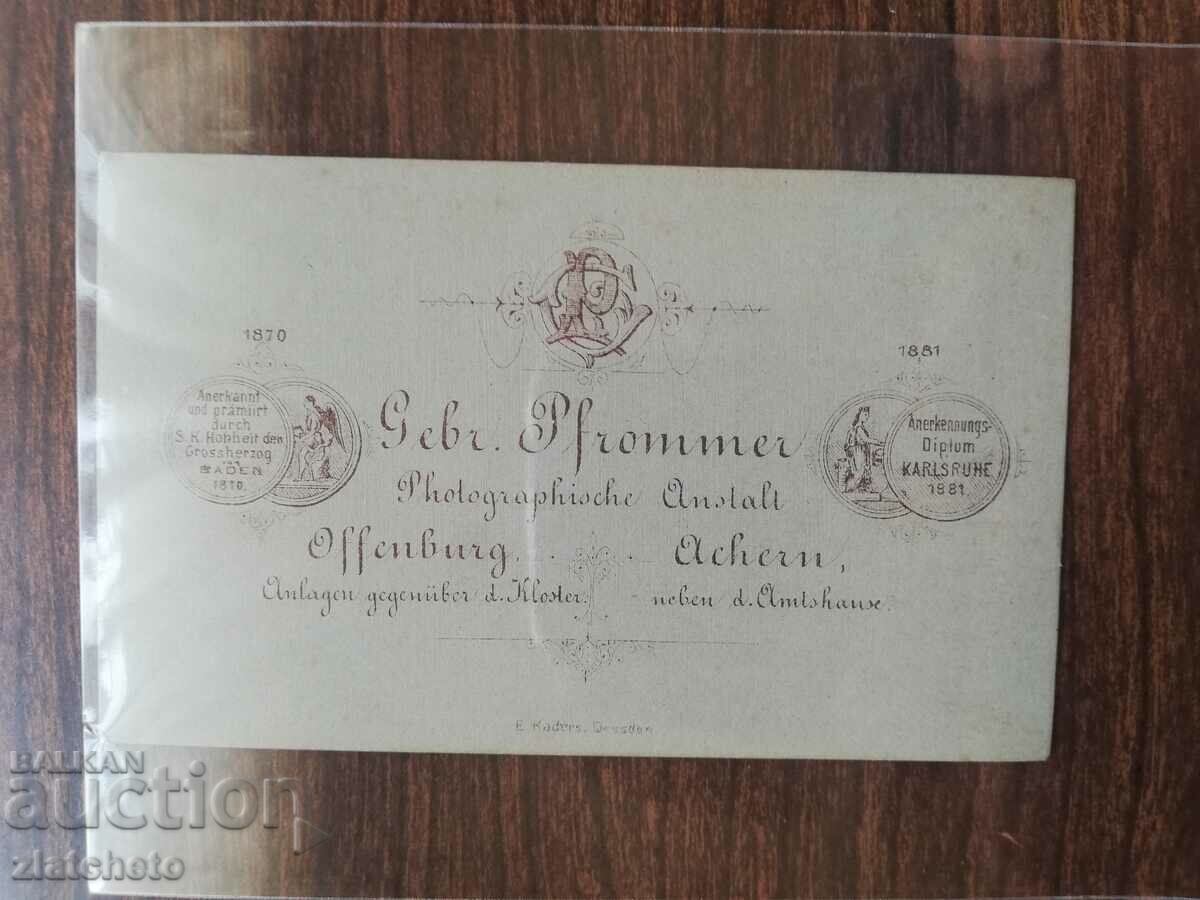 1870
Anerkannt
und prämiirt
durch
S. K. Hohheit den
Grossherzog
von
BADEN
1870.
Gebr. Pfrommer
Photographische Anstalt
Offenburg,
Anlagen gegenüber d. Kloster.
Achern,
neben d. Amtshause.
1881
Anerkennungs-
Diplom
KARLSRUHE
1881
E. Kaders. Dresden
BALKAN
auction
zlatcheto